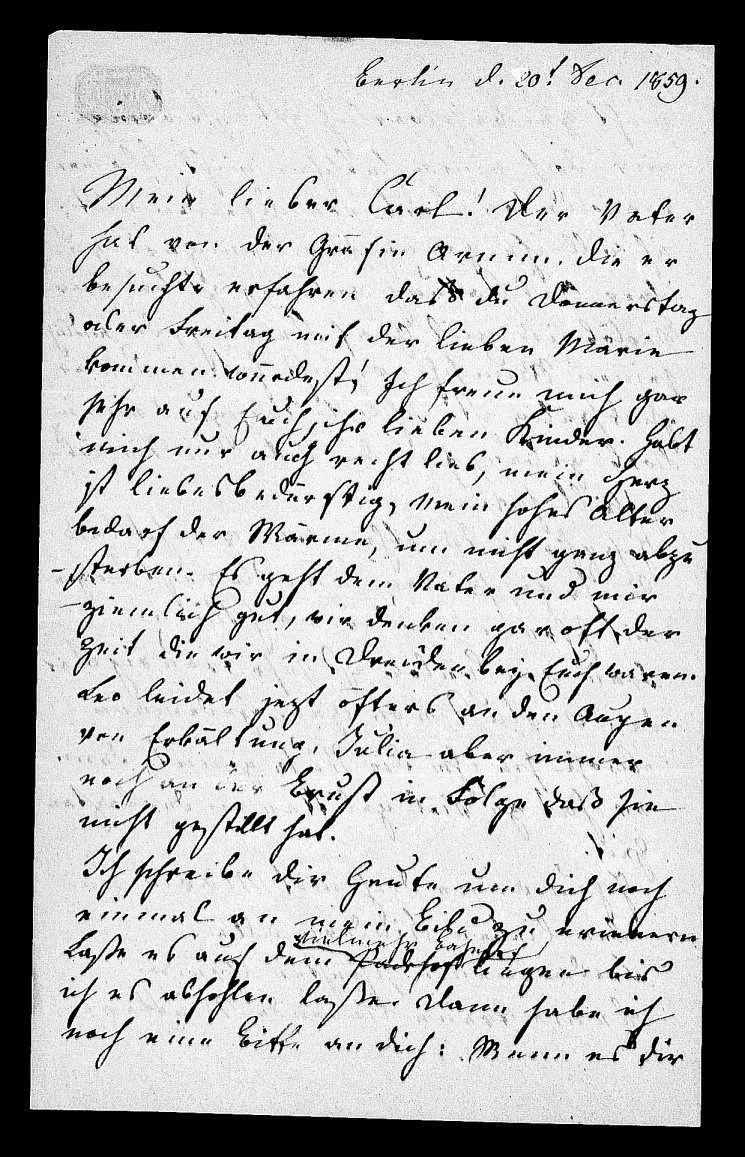 Berlin d. 20t Dec. 1859.
Mein lieber Carl! Der Vater
hat von der Gräfin Arnim, die er
besuchte erfahren daß du Donnerstag
oder Freitag mit der lieben Marie
kommen wurdest! Ich freue mich gar
sehr auf Euch, ihr lieben Kinder. Habt
mich nur auch recht lieb, mein Herz
ist liebesbedürftig, mein hohes Alter
bedarf der Wärme, um nicht ganz abzu
-sterben. Es geht dem Vater und mir
-ziemlich gut, wir denken gar oft der
Zeit die wir in Dresden bey Euch waren.
Leo leidet jezt öfters an den Augen
von Erkältung. Julia aber immer
noch an der Brust in Folge daß sie
nicht gestillt hat.
Ich schreibe dir Heute um dich noch
einmal an mein zu erinnern
vielmehr Bahnhof
Laße es auf dem Packhof liegen bis
ich es abhohlen laße. Dann habe ich
noch eine Bitte an dich: Wenn es dir